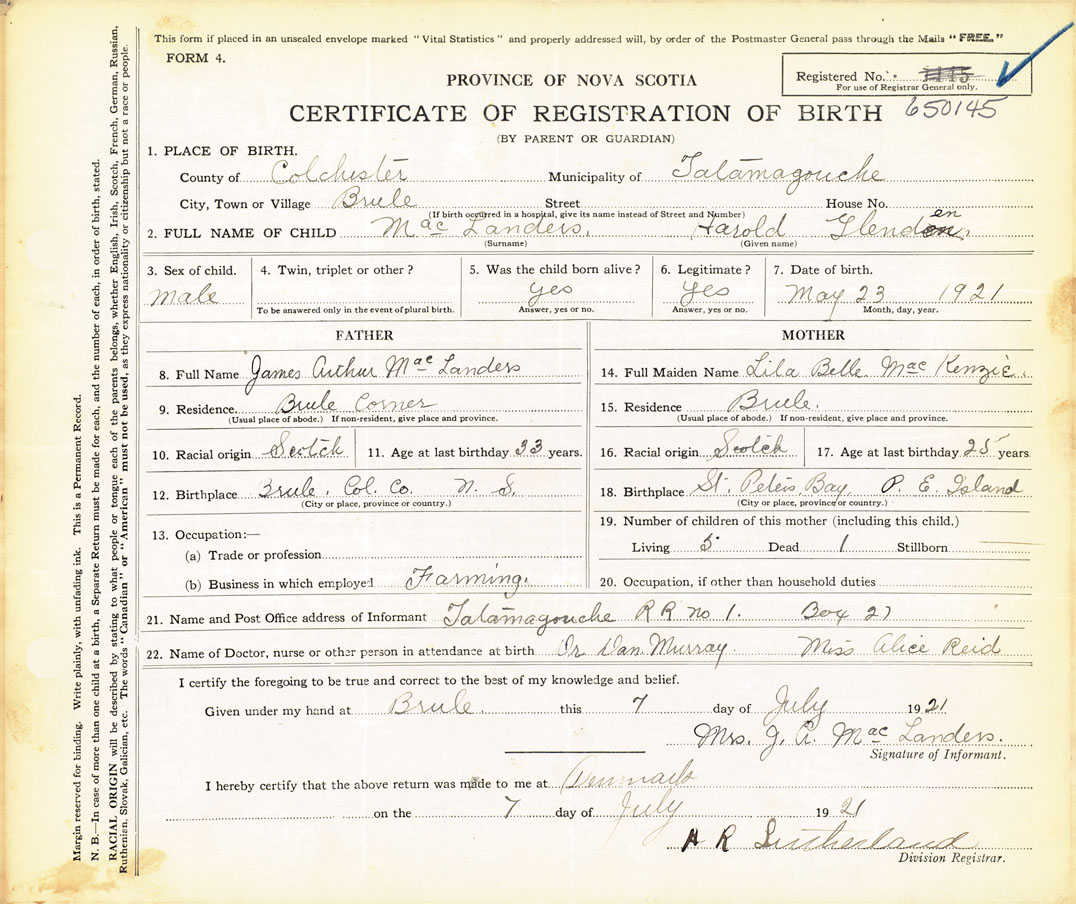 This form if placed in an unsealed envelope marked "Vital Statistics" and properly addressed will, by order of the Postmaster General pass through the Mails "FREE."
FORM 4.
PROVINCE OF NOVA SCOTIA
Registered No.
For use of Registrar General only.
650145
CERTIFICATE OF REGISTRATION OF BIRTH
(BY PARENT OR GUARDIAN)
1. PLACE OF BIRTH.
County of Colchester Municipality of Tatamagouche
City, Town or Village Brule Street House No.
(If birth occurred in a hospital, give its name instead of Street and Number)
2. FULL NAME OF CHILD MacLanders. Harold Glenden
(Surname) (Given name)
3. Sex of child. 4. Twin, triplet or other? 5. Was the child born alive? 6. Legitimate? 7. Date of birth.
Male yes yes May 23 1921
To be answered only in the event of plural birth. Answer, yes or no. Answer, yes or no. Month, day, year.
FATHER
8. Full Name James Arthur MacLanders
9. Residence. Brule Corner
(Usual place of abode.) If non-resident, give place and province.
10. Racial origin Scotch 11. Age at last birthday 33 years.
12. Birthplace Brule, Col. Co. N. S.
(City or place, province or country.)
13. Occupation:—
(a) Trade or profession
(b) Business in which employed Farming.
MOTHER
14. Full Maiden Name Lila Belle MacKenzie.
15. Residence Brule.
(Usual place of abode.) If non-resident, give place and province.
16. Racial origin Scotch 17. Age at last birthday 25 years
18. Birthplace St. Peters Bay, P. E. Island
(City or place, province or country.)
19. Number of children of this mother (including this child.)
Living 5 Dead 1 Stillborn
20. Occupation, if other than household duties
21. Name and Post Office address of Informant Tatamagouche R R no 1. Box 27
22. Name of Doctor, nurse or other person in attendance at birth Dr Dan Murray. Miss Alice Reid
I certify the foregoing to be true and correct to the best of my knowledge and belief.
Given under my hand at Brule. this 7 day of July 1921
Mrs. J. A. MacLanders.
Signature of Informant.
I hereby certify that the above return was made to me at Denmark
on the 7 day of July 1921
A R Sutherland
Division Registrar.
Margin reserved for binding. Write plainly, with unfading ink. This is a Permanent Record.
N. B.—In case of more than one child at a birth, a Separate Return must be made for each, and the number of each, in order of birth, stated.
RACIAL ORIGIN will be described by stating to what people or tongue each of the parents belongs, whether English, Irish, Scotch, French, German, Russian,
Ruthenian, Slovak, Galician, etc. The words "Canadian" or "American" must not be used, as they express nationality or citizenship but not a race or people.